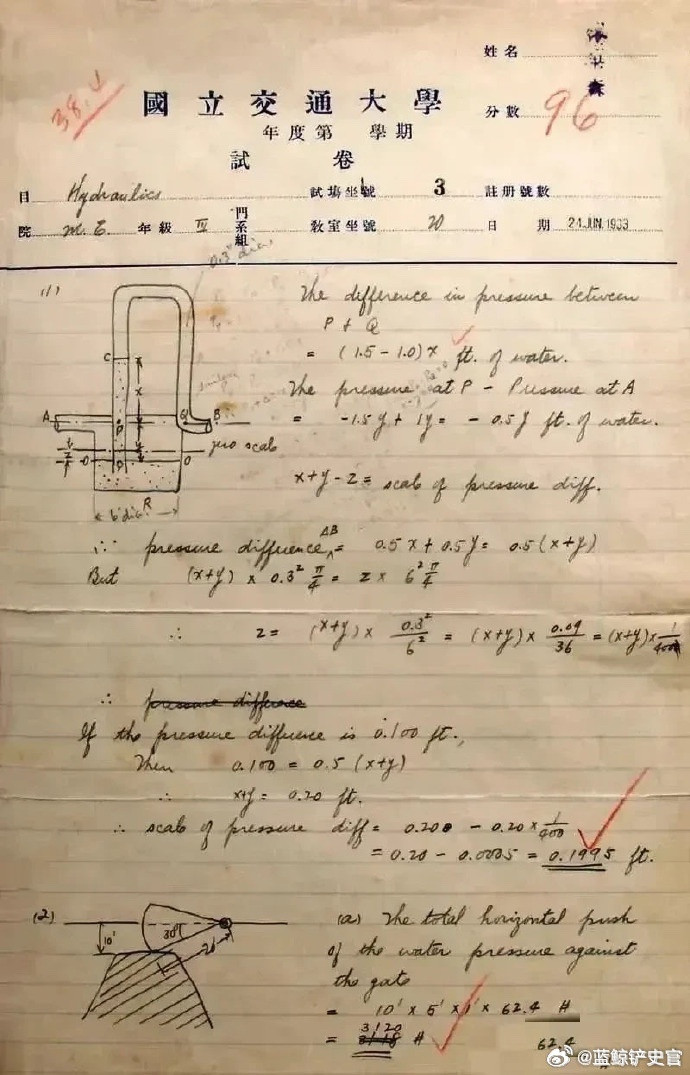 姓名
38.4
國立交通大學
分數 96
年度第 學期
試卷
目 Hydraulics 試場坐號 3 註册號數
院 M.E. 年級 IV 門系組 教室坐號 20 日期 24 JUN 1933
0.3" dia.
(1)
The difference in pressure between
P & Q
= (1.5 - 1.0) x ft. of water.
The pressure at P - Pressure at A
= -1.5 y + 1y = -0.5 y ft. of water.
x+y-z = scale of pressure diff.
C
x
A
P
Q
B
y
zero scale
O
O
R
6" dia.
∵ pressure difference AB = 0.5 x + 0.5 y = 0.5 (x+y)
But (x+y) × 0.3² π/4 = z × 6² π/4
∴ z = (x+y) × 0.3²/6² = (x+y) × 0.09/36 = (x+y) × 1/400
∴ pressure difference
If the pressure difference is 0.100 ft.,
Then 0.100 = 0.5 (x+y)
∴ x+y = 0.20 ft.
∴ scale of pressure diff = 0.200 - 0.20 × 1/400
= 0.20 - 0.0005 = 0.1995 ft.
(2)
10'
30°
20'
(a) The total horizontal push
of the water pressure against
the gate
= 10' × 5' × 1' × 62.4 #
3120
= 3118 #
62.4
@蓝鲸铲史官